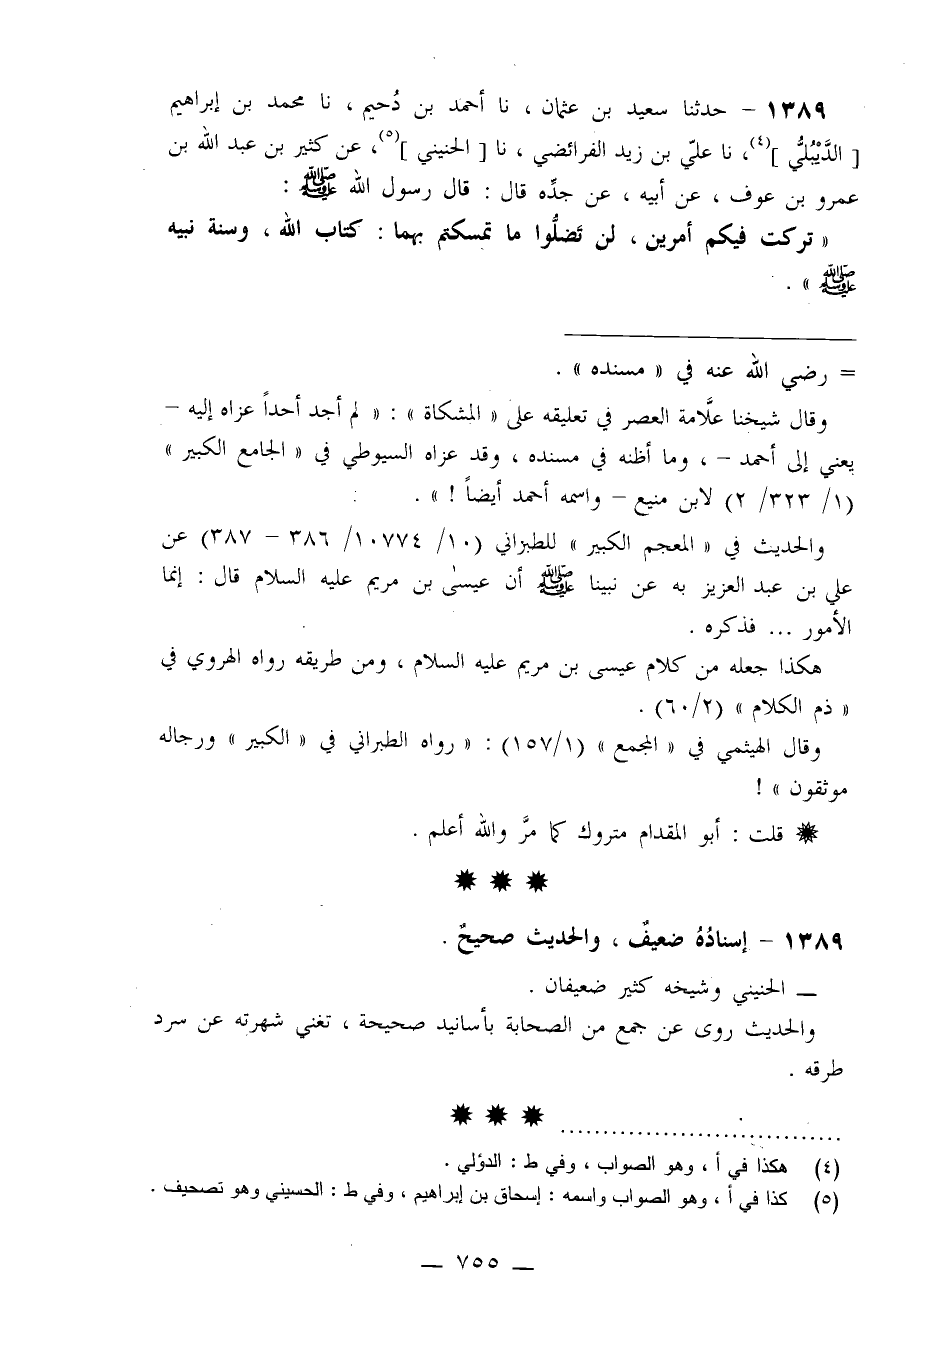 ١٣٨٩ – حدثنا سعيد بن عثمان ، نا أحمد بن دُحيم ، نا محمد بن إبراهيم
[ الدَّيْبُليُّ ](٤)، نا عليّ بن زيد الفرائضي ، نا [ الحنيني ](٥)، عن كثير بن عبد الله بن
عمرو بن عوف ، عن أبيه ، عن جدِّه قال : قال رسول الله ﷺ :
« تركت فيكم أمرين ، لن تَضلُّوا ما تمسكتم بهما : كتاب الله ، وسنة نبيه
ﷺ » .
= رضي الله عنه في « مسنده » .
وقال شيخنا علَّامة العصر في تعليقه على « المشكاة » : « لم أجد أحداً عزاه إليه –
يعني إلى أحمد – ، وما أظنه في مسنده ، وقد عزاه السيوطي في « الجامع الكبير »
(١/ ٣٢٣/ ٢) لابن منيع – واسمه أحمد أيضاً ! » .
والحديث في « المعجم الكبير » للطبراني (١٠/ ١٠٧٧٤/ ٣٨٦ – ٣٨٧) عن
علي بن عبد العزيز به عن نبينا ﷺ أن عيسىٰ بن مريم عليه السلام قال : إنما
الأمور ... فذكره .
هكذا جعله من كلام عيسى بن مريم عليه السلام ، ومن طريقه رواه الهروي في
« ذم الكلام » (٦٠/٢) .
وقال الهيثمي في « المجمع » (١٥٧/١) : « رواه الطبراني في « الكبير » ورجاله
موثقون » !
✹ قلت : أبو المقدام متروك كما مرَّ والله أعلم .
✹ ✹ ✹
١٣٨٩ – إسنادُهُ ضعيفٌ ، والحديث صحيحٌ .
— الحنيني وشيخه كثير ضعيفان .
والحديث روى عن جمع من الصحابة بأسانيد صحيحة ، تغني شهرته عن سرد
طرقه .
✹ ✹ ✹
(٤) هكذا في أ ، وهو الصواب ، وفي ط : الدؤلي .
(٥) كذا في أ ، وهو الصواب واسمه : إسحاق بن إبراهيم ، وفي ط : الحسيني وهو تصحيف .
— ٧٥٥ —